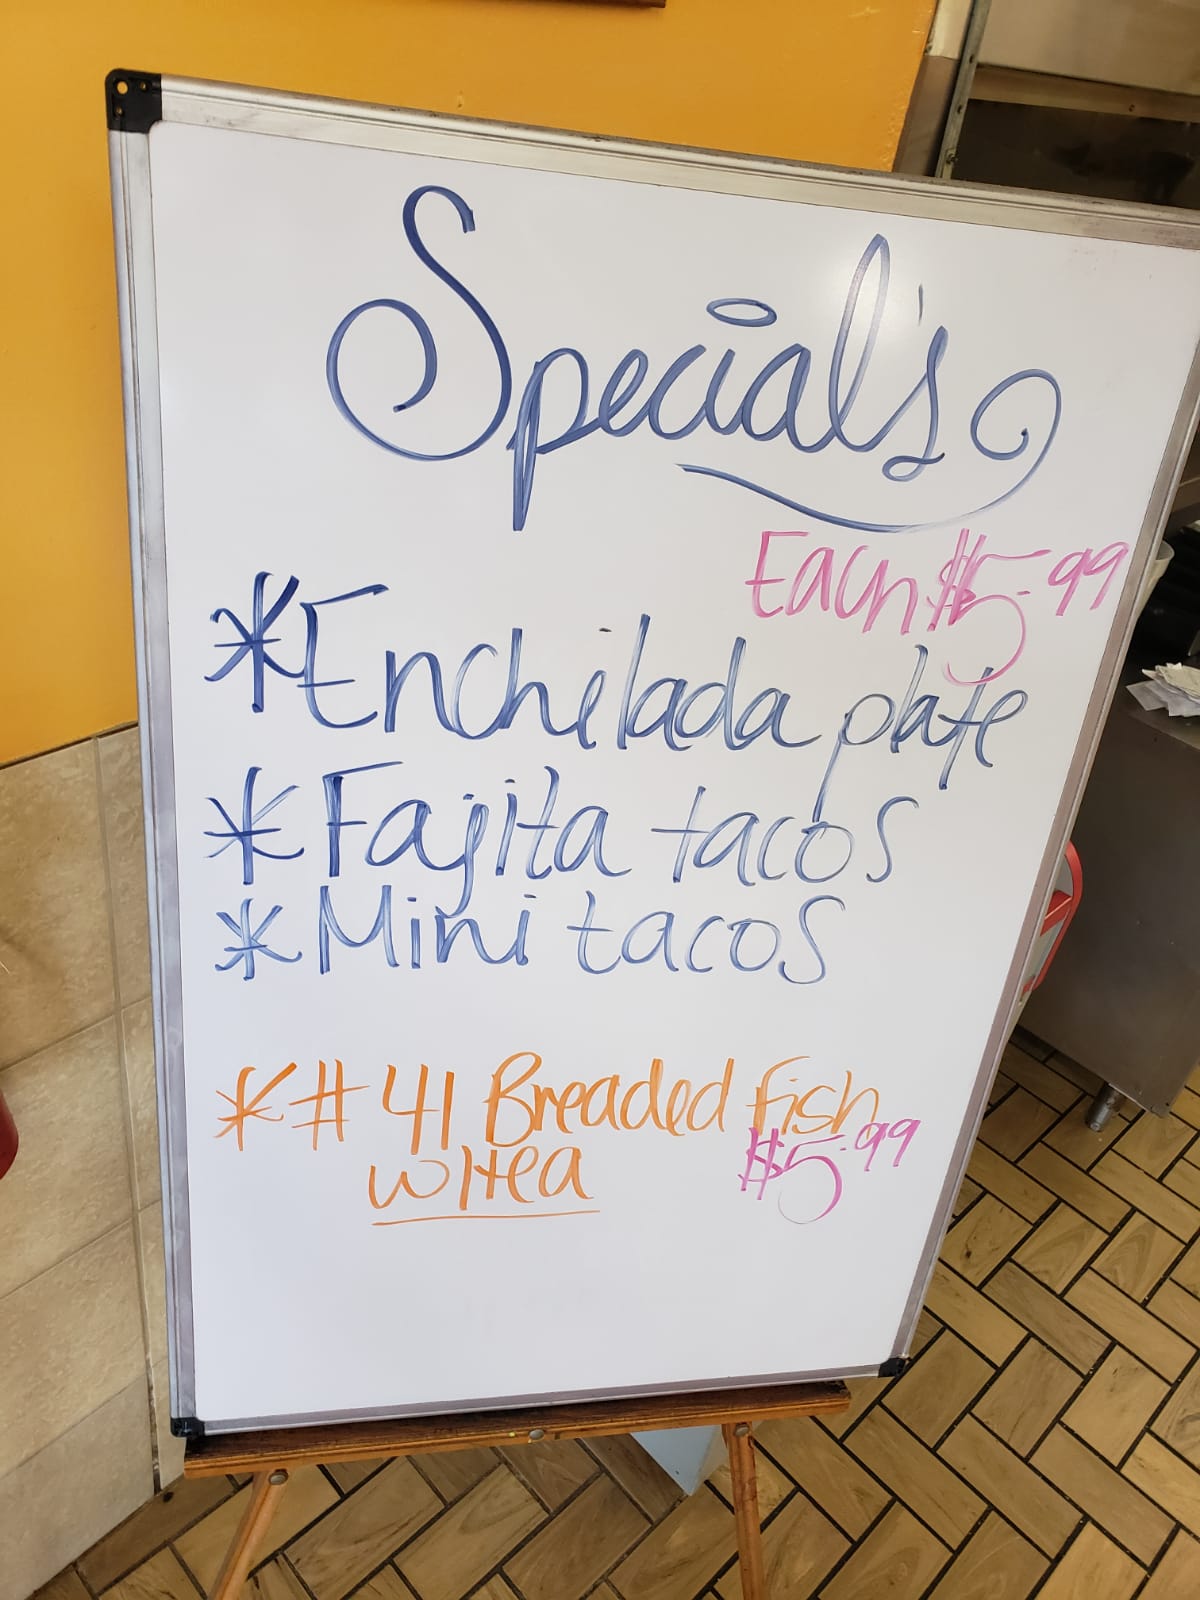 Special's
Each $5.99
*Enchilada plate
*Fajita tacos
*Mini tacos
*#41 Breaded Fish
w/tea $5.99